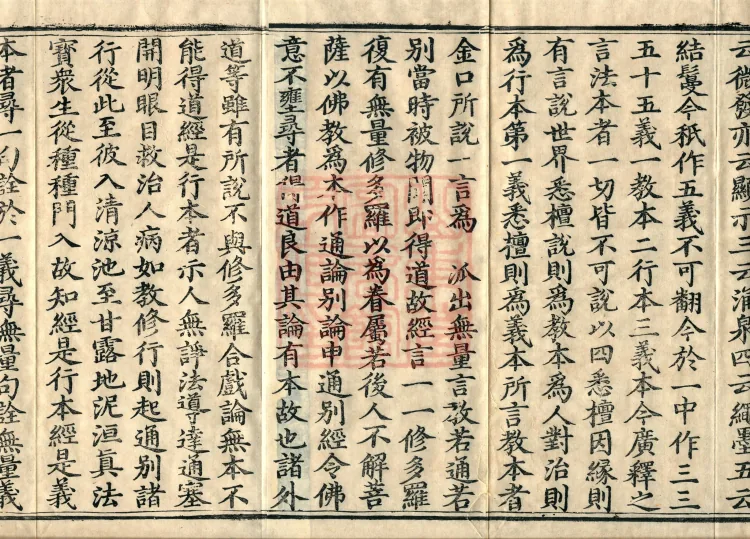 云微發亦云顯示三云涌泉四云繩墨五云
結鬘今秖作五義不可翻今於一中作三三
五十五義一教本二行本三義本今廣釋之
言法本者一切皆不可說以四悉檀因緣則
有言說世界悉檀說則為教本為人對治則
為行本第一義悉檀則為義本所言教本者
金口所說一言為 泒出無量言教若通若
別當時被物聞即得道故經言一一修多羅
復有無量修多羅以為眷屬若後人不解菩
薩以佛教為本作通論別論申通別經令佛
意不壅尋者得道良由其論有本故也諸外
道等雖有所說不與修多羅合戲論無本不
能得道經是行本者示人無諍法導達通塞
開明眼目救治人病如教修行則起通別諸
行從此至彼入清涼池至甘露地泥洹真法
寶衆生從種種門入故知經是行本經是義
本者尋一句詮於一義尋無量句詮無量義